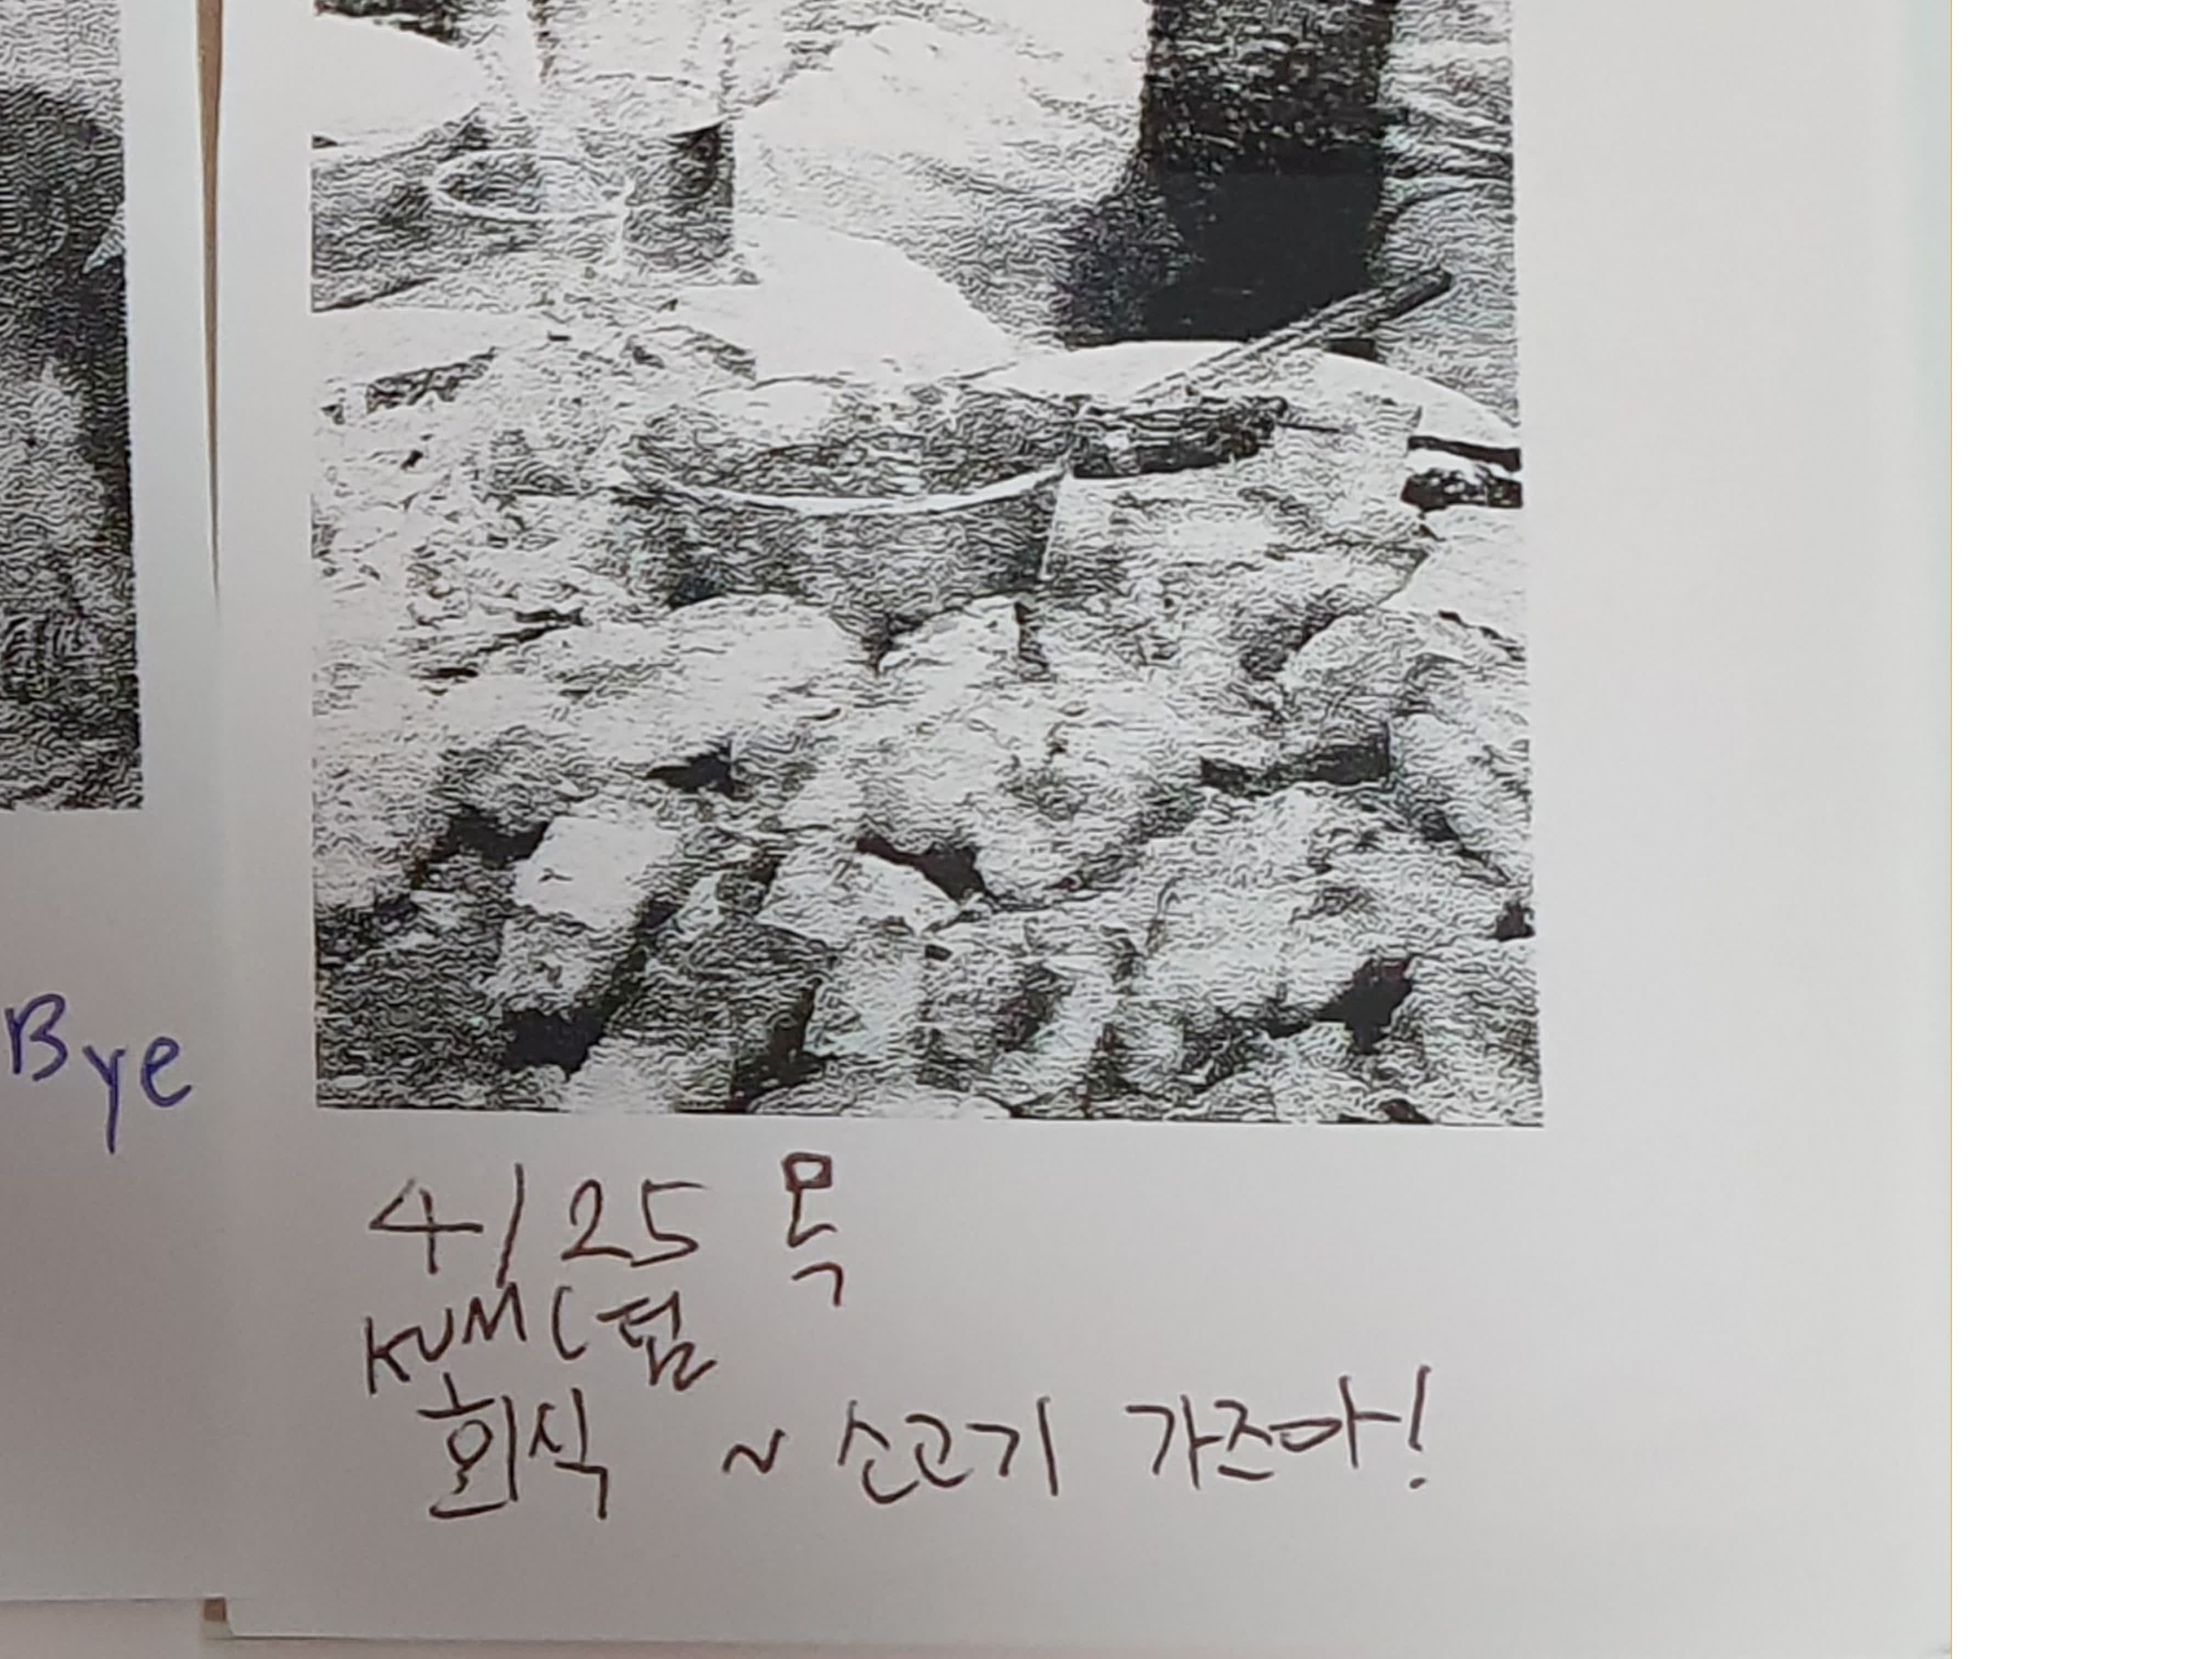 Bye
4/25 목
KUMC팀
회식 ~ 소고기 가즈아!